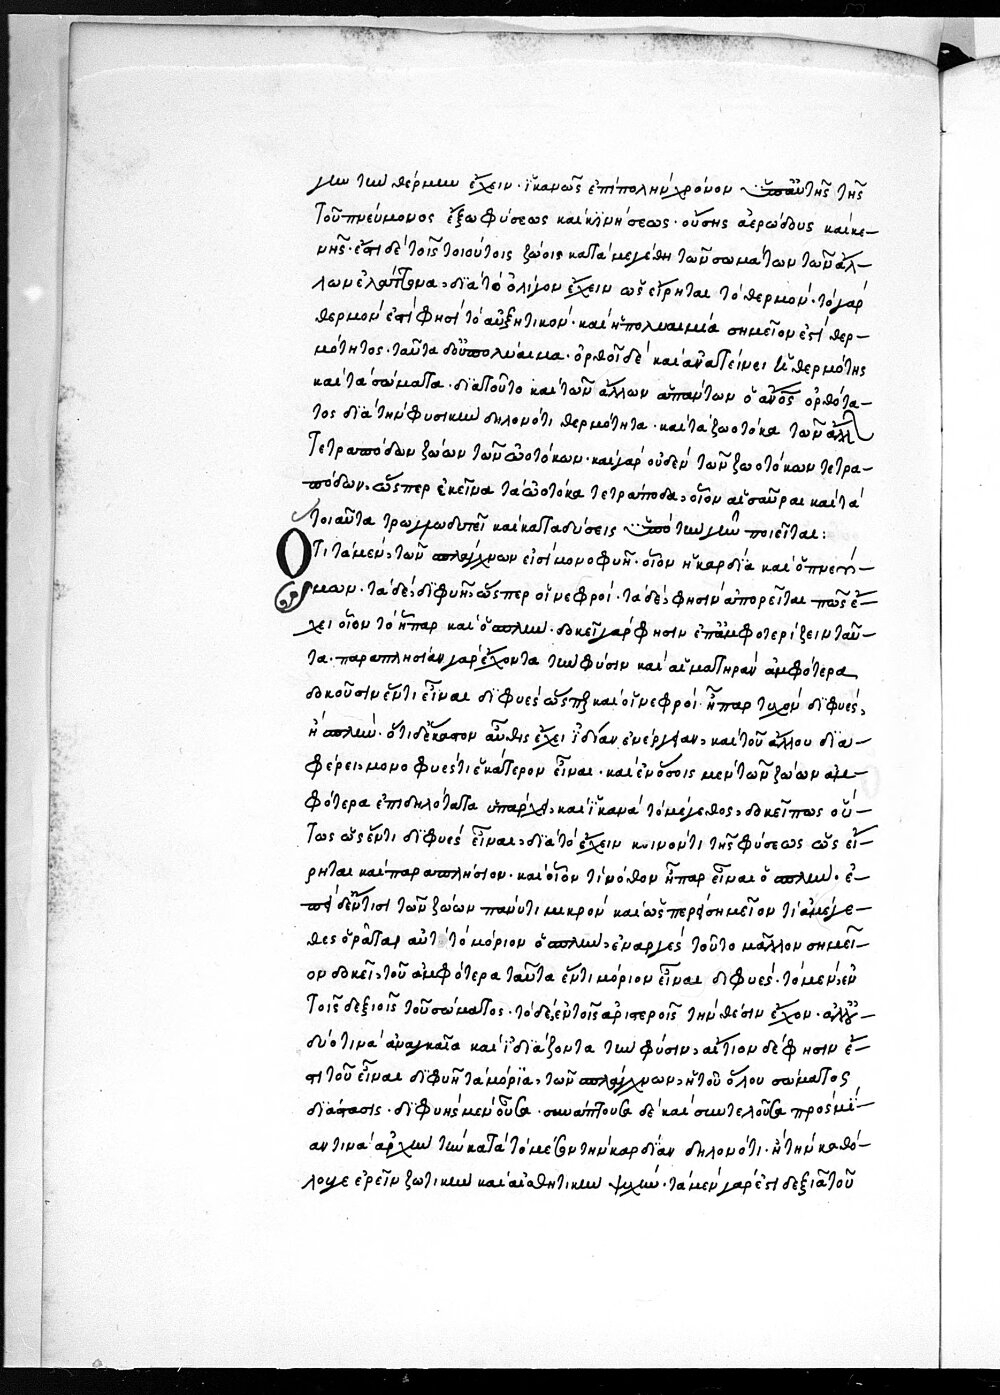 μην τὴν θέρμην ἔχειν· ἱκανῶς ἐπιπολὺν χρόνον ὑπαὐτῆς τῆς
τοῦ πνεύμονος ἔξω φύσεως καὶ κινήσεως· οὔσης ἀερώδους καὶ κε-
νῆς· ἔστι δὲ τοῖς τοιούτοις ζώοις κατὰ μεγέθη τῶν σωμάτων τῶν ἀλ-
λων ἐλάττονα, διὰ τὸ ὀλίγον ἔχειν ὡς εἴρηται τὸ θερμόν· τὸ γὰρ
θερμὸν ἐστί φησι τὸ αὐξητικόν· καὶ ἡ πολυαιμία σημεῖον ἐστὶ θερ-
μότητος· ταῦτα δοὖπολύαιμα· ὀρθοῖ δὲ καὶ ἀνατείνει ἡ θερμότης
καὶ τὰ σώματα· διατοῦτο καὶ τῶν ἄλλων ἁπάντων ὁ ἄνος ὀρθότα-
τος διὰ τὴν φυσικὴν δηλονότι θερμότητα· καὶ τὰ ζωοτόκα τῶν ἄλλ
τετραπόδων ζώων τῶν ὠοτόκων· καὶ γὰρ οὐδὲν τῶν ζωοτόκων τετρα-
πόδων, ὥσπερ ἐκεῖνα τὰ ὠοτόκα τετράποδα, οἷον αἱ σαῦραι καὶ τὰ
τοιαῦτα τρωγλωδυτεῖ καὶ καταδύσεις ὑπὸ τὴν γῆν ποιεῖται:
Ὅτι τὰ μὲν, τῶν σπλάγχνων εἰσὶ μονοφυῆ· οἷον ἡ καρδία καὶ ὁ πνεύ-
μων· τὰ δὲ, διφυῆ, ὥσπερ οἱ νεφροί· τὰ δὲ, φησὶν ἀπορεῖται πῶς ἔ-
χει οἷον τὸ ἧπαρ καὶ ὁ σπλήν· δοκεῖ γὰρ φησὶν ἐπαμφοτερίζειν ταῦ-
τα· παραπλησίαν γὰρ ἔχοντα τὴν φύσιν καὶ αἱματηρὰν ἀμφότερα
δοκοῦσιν ἕν τι εἶναι διφυές ὥσπερ καὶ οἱ νεφροί· ἧπαρ τυχὸν διφυές,
ἢ σπλήν· ὅτι δὲ ἕκαστον αὖθις ἔχει ἰδίαν ἐνέργειαν, καὶ τοῦ ἄλλου δια-
φέρει, μονοφυές τι ἑκάτερον εἶναι· καὶ ἐν ὅσοις μὲν τῶν ζώων ἀμ-
φότερα ἐπιδηλότατα ὑπάρχει, καὶ ἱκανὰ τὸ μέγεθος, δοκεῖ πως οὕ-
τως ὡς ἕν τι διφυές εἶναι, διὰ τὸ ἔχειν κοινόν τι τῆς φύσεως ὡς εἴ-
ρηται καὶ παραπλήσιον· καὶ οἷόν τι νόθον ἧπαρ εἶναι ὁ σπλήν· ἐ-
πεὶ δἔν τισι τῶν ζώων πάνυ τι μικρὸν καὶ ὥσπερ σημεῖον τι ἀμέγε-
θες ὁρᾶται αὐτὸ τὸ μόριον ὁ σπλήν, ἐναργὲς τοῦτο μᾶλλον σημεῖ-
ον δοκεῖ, τοῦ ἀμφότερα ταῦτα ἕν τι μόριον εἶναι διφυές· τὸ μὲν, ἐν
τοῖς δεξιοῖς τοῦ σώματος· τὸ δὲ, ἐν τοῖς ἀριστεροῖς τὴν θέσιν ἔχον· ἀλλοὐ
δύο τινὰ ἀναγκαῖα καὶ ἰδιάζοντα τὴν φύσιν, αἴτιον δέ φησιν ἔ-
στι τοῦ εἶναι διφυῆ τὰ μόρια, τῶν σπλάγχνων, ἡ τοῦ ὅλου σώματος
διάστασις· διφυὴς μὲν οὖσα· συνάπτουσα δὲ καὶ συντελοῦσα πρὸς μί-
αν τινὰ ἀρχὴν τὴν κατὰ τὸ μέσον τὴν καρδίαν δηλονότι· ἢ τὴν καθό-
λου γε ἐρεῖν ζωτικὴν καὶ αἰσθητικὴν ψυχήν· τὰ μὲν γὰρ ἐστι δεξιὰ τοῦ